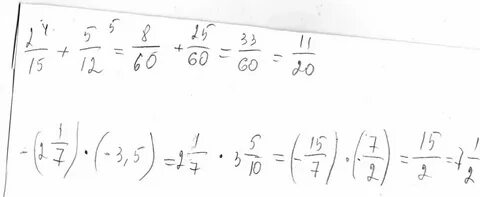 2⁴/15 + 5⁵/12 = 8/60 + 25/60 = 33/60 = 11/20
-(2 1/7) · (-3,5) = 2 1/7 · 3 5/10 = (-15/7) · (-7/2) = 15/2 = 7 1/2